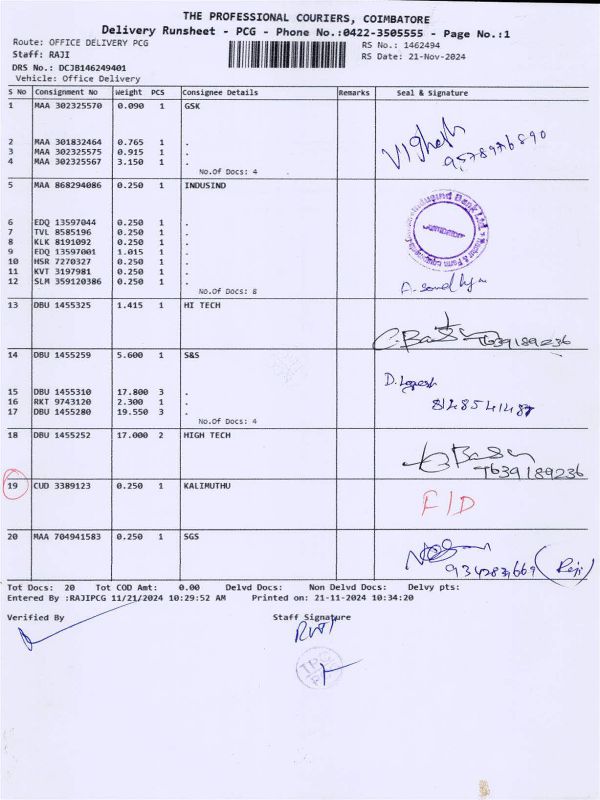 THE PROFESSIONAL COURIERS, COIMBATORE
Delivery Runsheet - PCG - Phone No.:0422-3505555 - Page No.:1
Route: OFFICE DELIVERY PCG RS No.: 1462494
Staff: RAJI RS Date: 21-Nov-2024
DRS No.: DCJB146249401
Vehicle: Office Delivery
S No Consignment No Weight PCS Consignee Details Remarks Seal & Signature
1 MAA 302325570 0.090 1 GSK
2 MAA 301832464 0.765 1 .
3 MAA 302325575 0.915 1 .
4 MAA 302325567 3.150 1 .
No.Of Docs: 4
5 MAA 868294086 0.250 1 INDUSIND
6 EDQ 13597044 0.250 1 .
7 TVL 8585196 0.250 1 .
8 KLK 8191092 0.250 1 .
9 EDQ 13597001 1.015 1 .
10 HSR 7270327 0.250 1 .
11 KVT 3197981 0.250 1 .
12 SLM 359120386 0.250 1 .
No.Of Docs: 8
13 DBU 1455325 1.415 1 HI TECH
7639189236
14 DBU 1455259 5.600 1 S&S
15 DBU 1455310 17.800 3 .
16 RKT 9743120 2.300 1 .
17 DBU 1455280 19.550 3 .
No.Of Docs: 4
18 DBU 1455252 17.000 2 HIGH TECH
7639189236
19 CUD 3389123 0.250 1 KALIMUTHU F/D
20 MAA 704941583 0.250 1 SGS
(Reji)
Tot Docs: 20 Tot COD Amt: 0.00 Delvd Docs: Non Delvd Docs: Delvy pts:
Entered By :RAJIPCG 11/21/2024 10:29:52 AM Printed on: 21-11-2024 10:34:20
Verified By Staff Signature